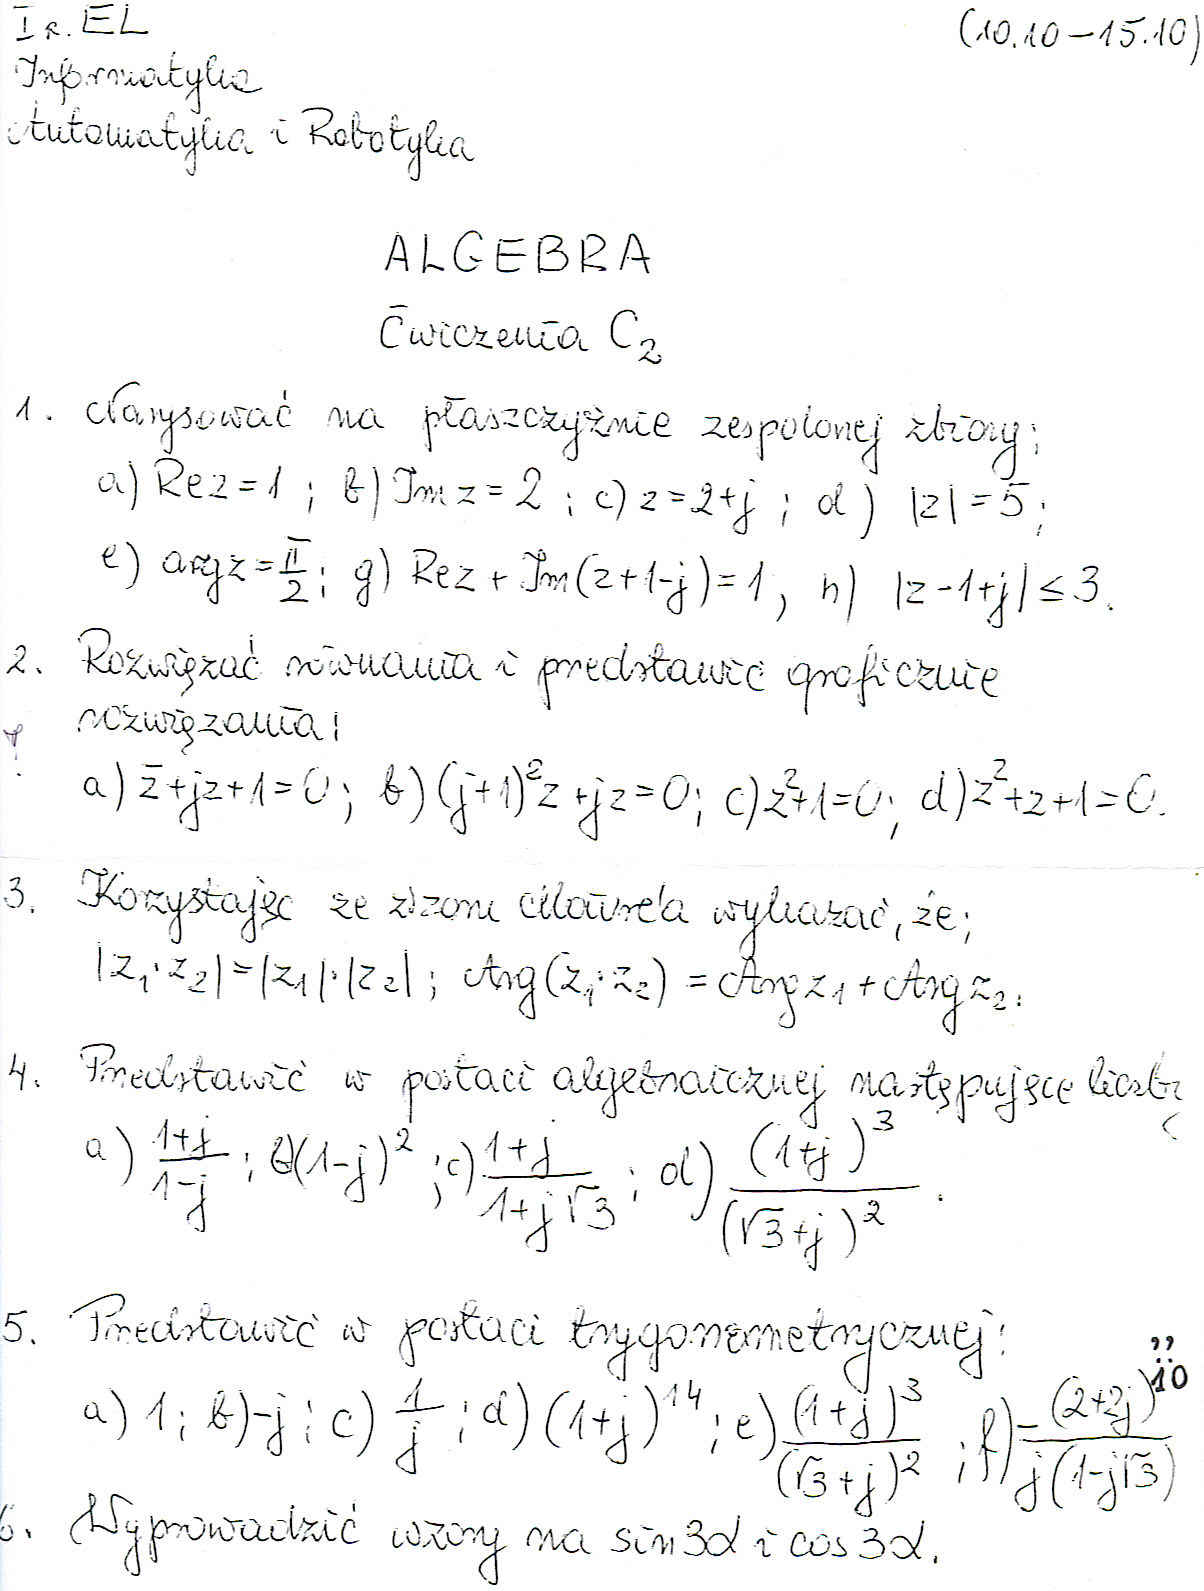 I r. EL (10.10-15.10)
Informatyka
Automatyka i Robotyka
ALGEBRA
Ćwiczenia C₂
1. Narysować na płaszczyźnie zespolonej zbiory:
a) Re z = 1 ; b) Im z = 2 ; c) z = 2+j ; d) |z| = 5 ;
e) arg z = π/2 ; g) Re z + Im(z+1-j) = 1 , h) |z-1+j| ≤ 3.
2. Rozwiązać równania i przedstawić graficznie
rozwiązania:
a) z̄+jz+1=0 ; b) (j+1)²z+jz=0 ; c) z²+1=0 ; d) z²+z+1=0.
3. Korzystając ze wzoru Moivre'a wykazać, że:
|z₁·z₂| = |z₁|·|z₂| ; Arg(z₁·z₂) = Arg z₁ + Arg z₂.
4. Przedstawić w postaci algebraicznej następujące liczby
a) (1+j)/(1-j) ; b) (1-j)² ; c) (1+j)/(1+j√3) ; d) (1+j)³/(√3+j)² .
5. Przedstawić w postaci trygonometrycznej:
a) 1 ; b) -j ; c) 1/j ; d) (1+j)¹⁴ ; e) (1+j)³/(√3+j)² ; f) -(2+2j)¹⁰/j(1-j√3)
6. Wyprowadzić wzory na sin3α i cos3α.